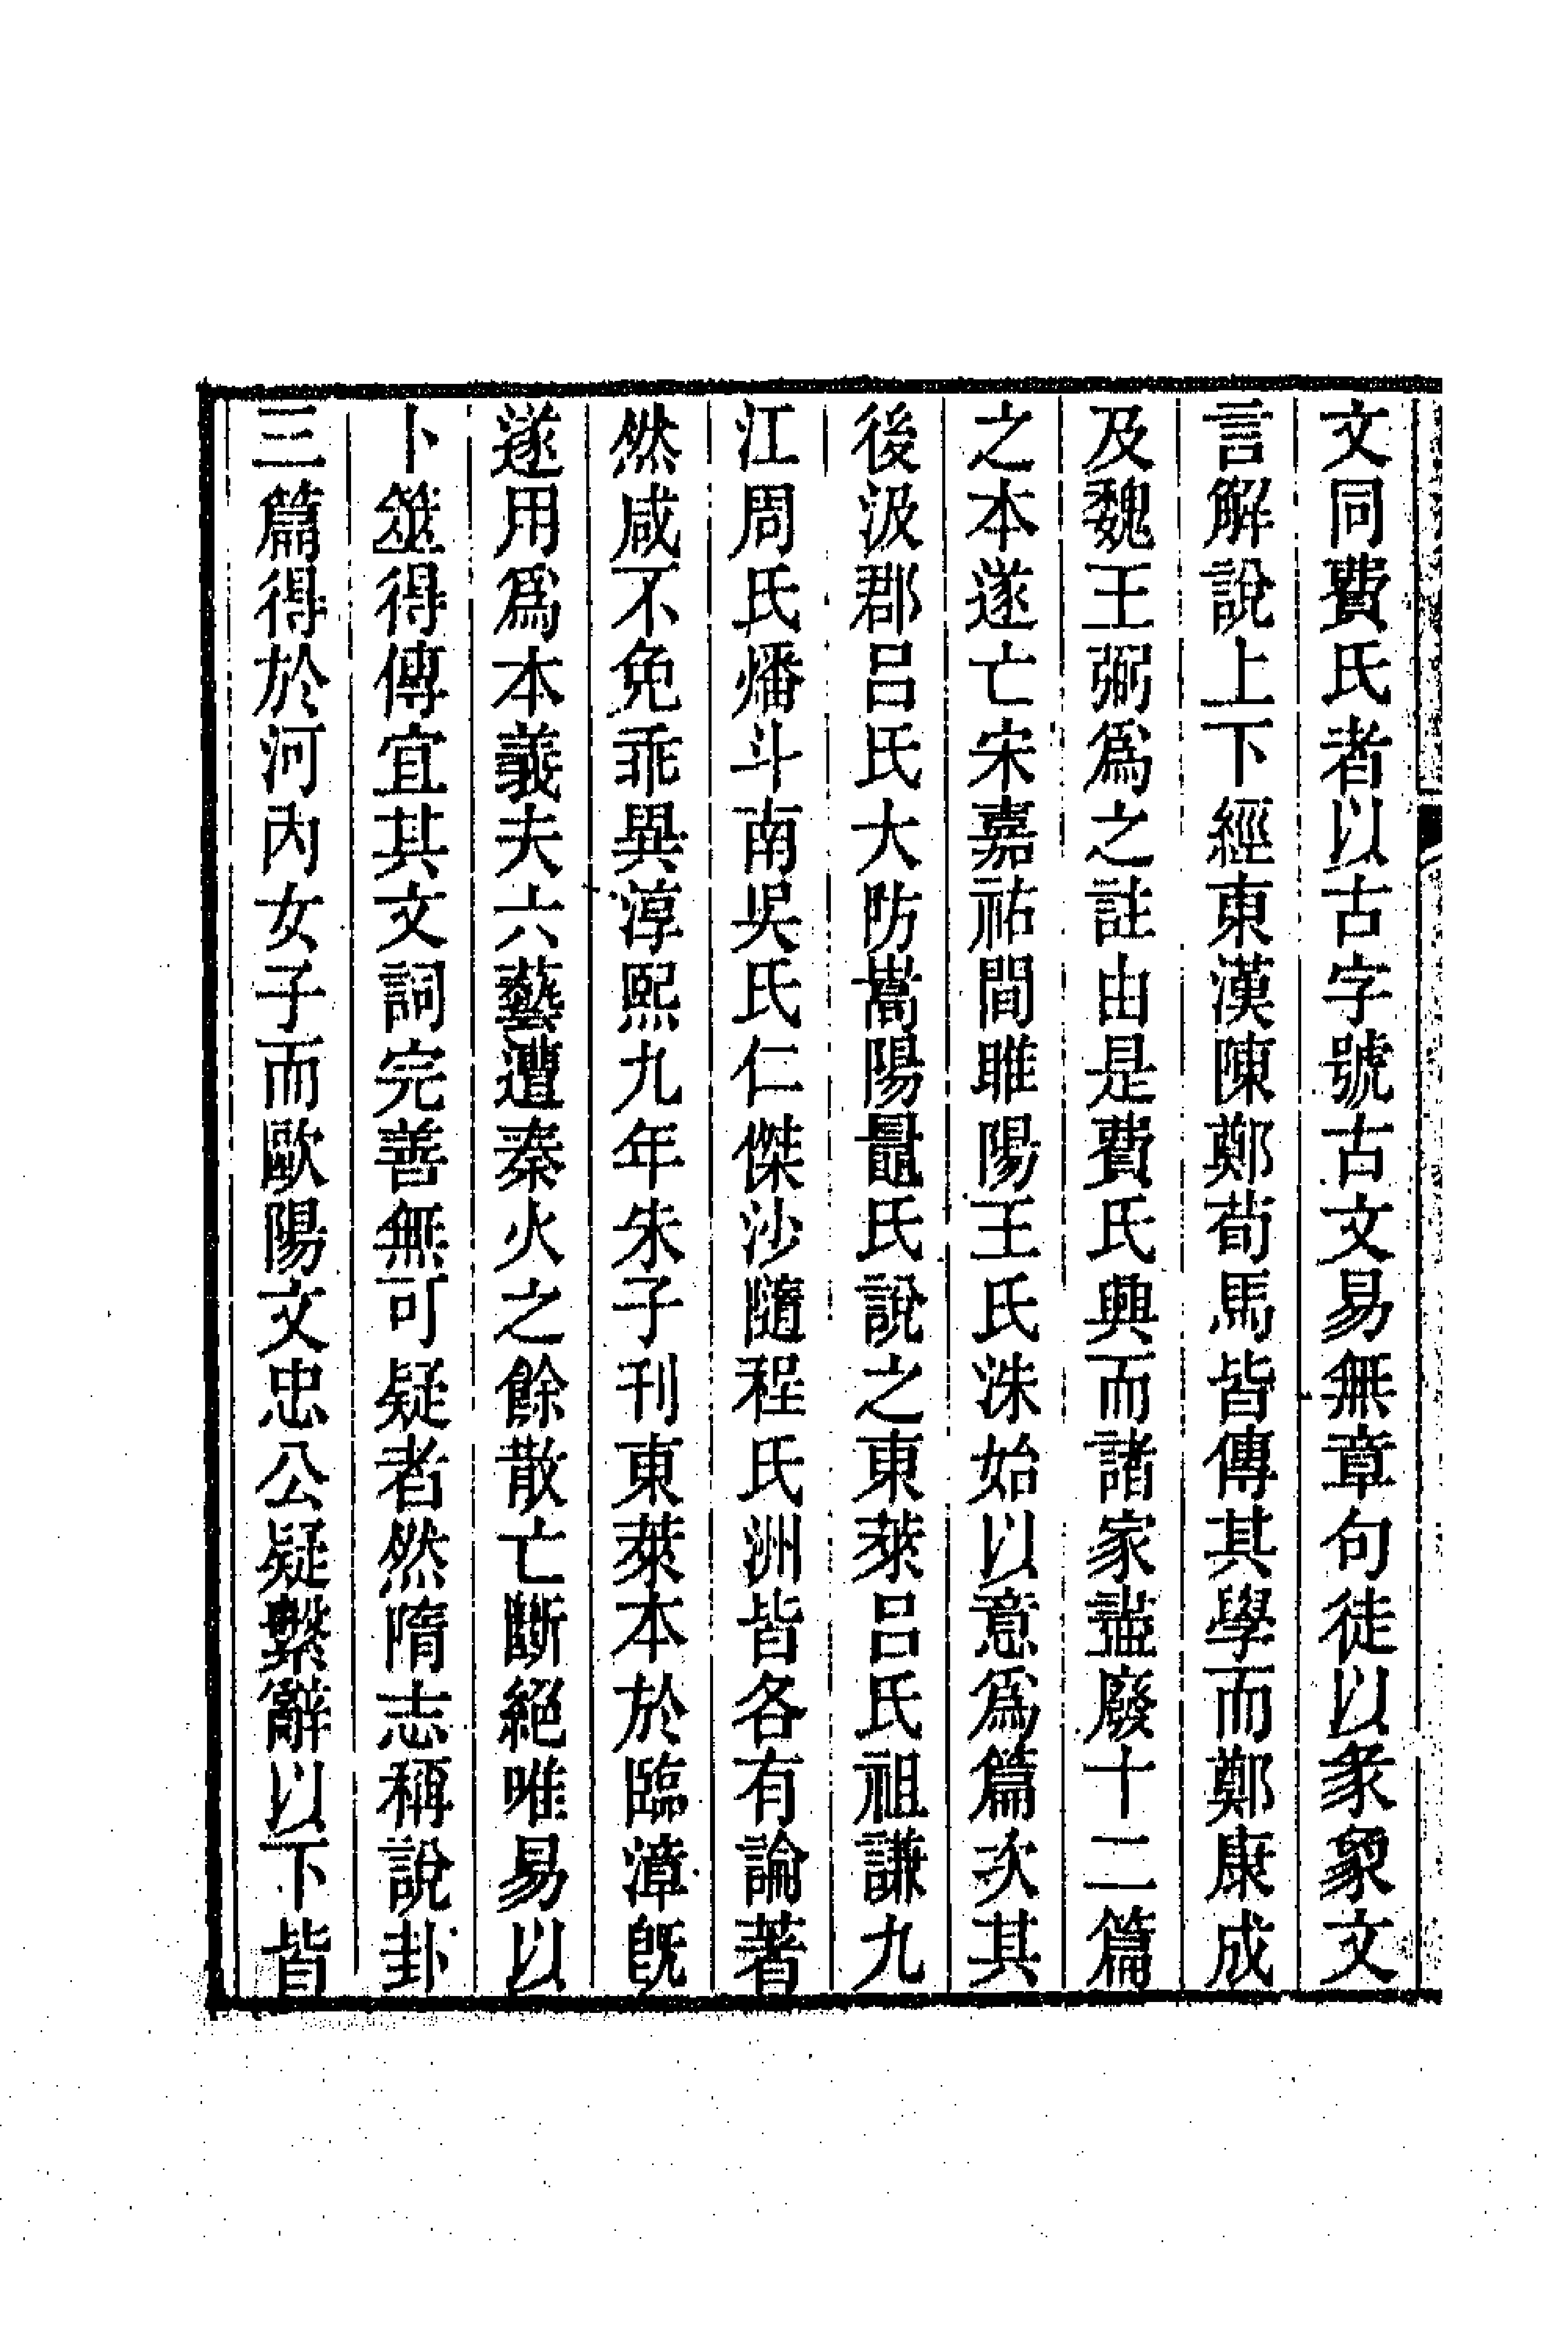 文同費氏者以古字號古文易無章句徒以彖象文
言解說上下經東漢陳鄭荀馬皆傳其學而鄭康成
及魏王弼爲之註由是費氏興而諸家盡廢十二篇
之本遂亡宋嘉祐間睢陽王氏洙始以意爲篇次其
後汲郡呂氏大防嵩陽鼂氏說之東萊呂氏祖謙九
江周氏燔斗南吳氏仁傑沙隨程氏洲皆各有論著
然咸不免乖異淳熙九年朱子刊東萊本於臨漳旣
遂用爲本義夫六藝遭秦火之餘散亡斷絕唯易以
卜筮得傳宜其文詞完善無可疑者然隋志稱說卦
三篇得於河內女子而歐陽文忠公疑繫辭以下皆